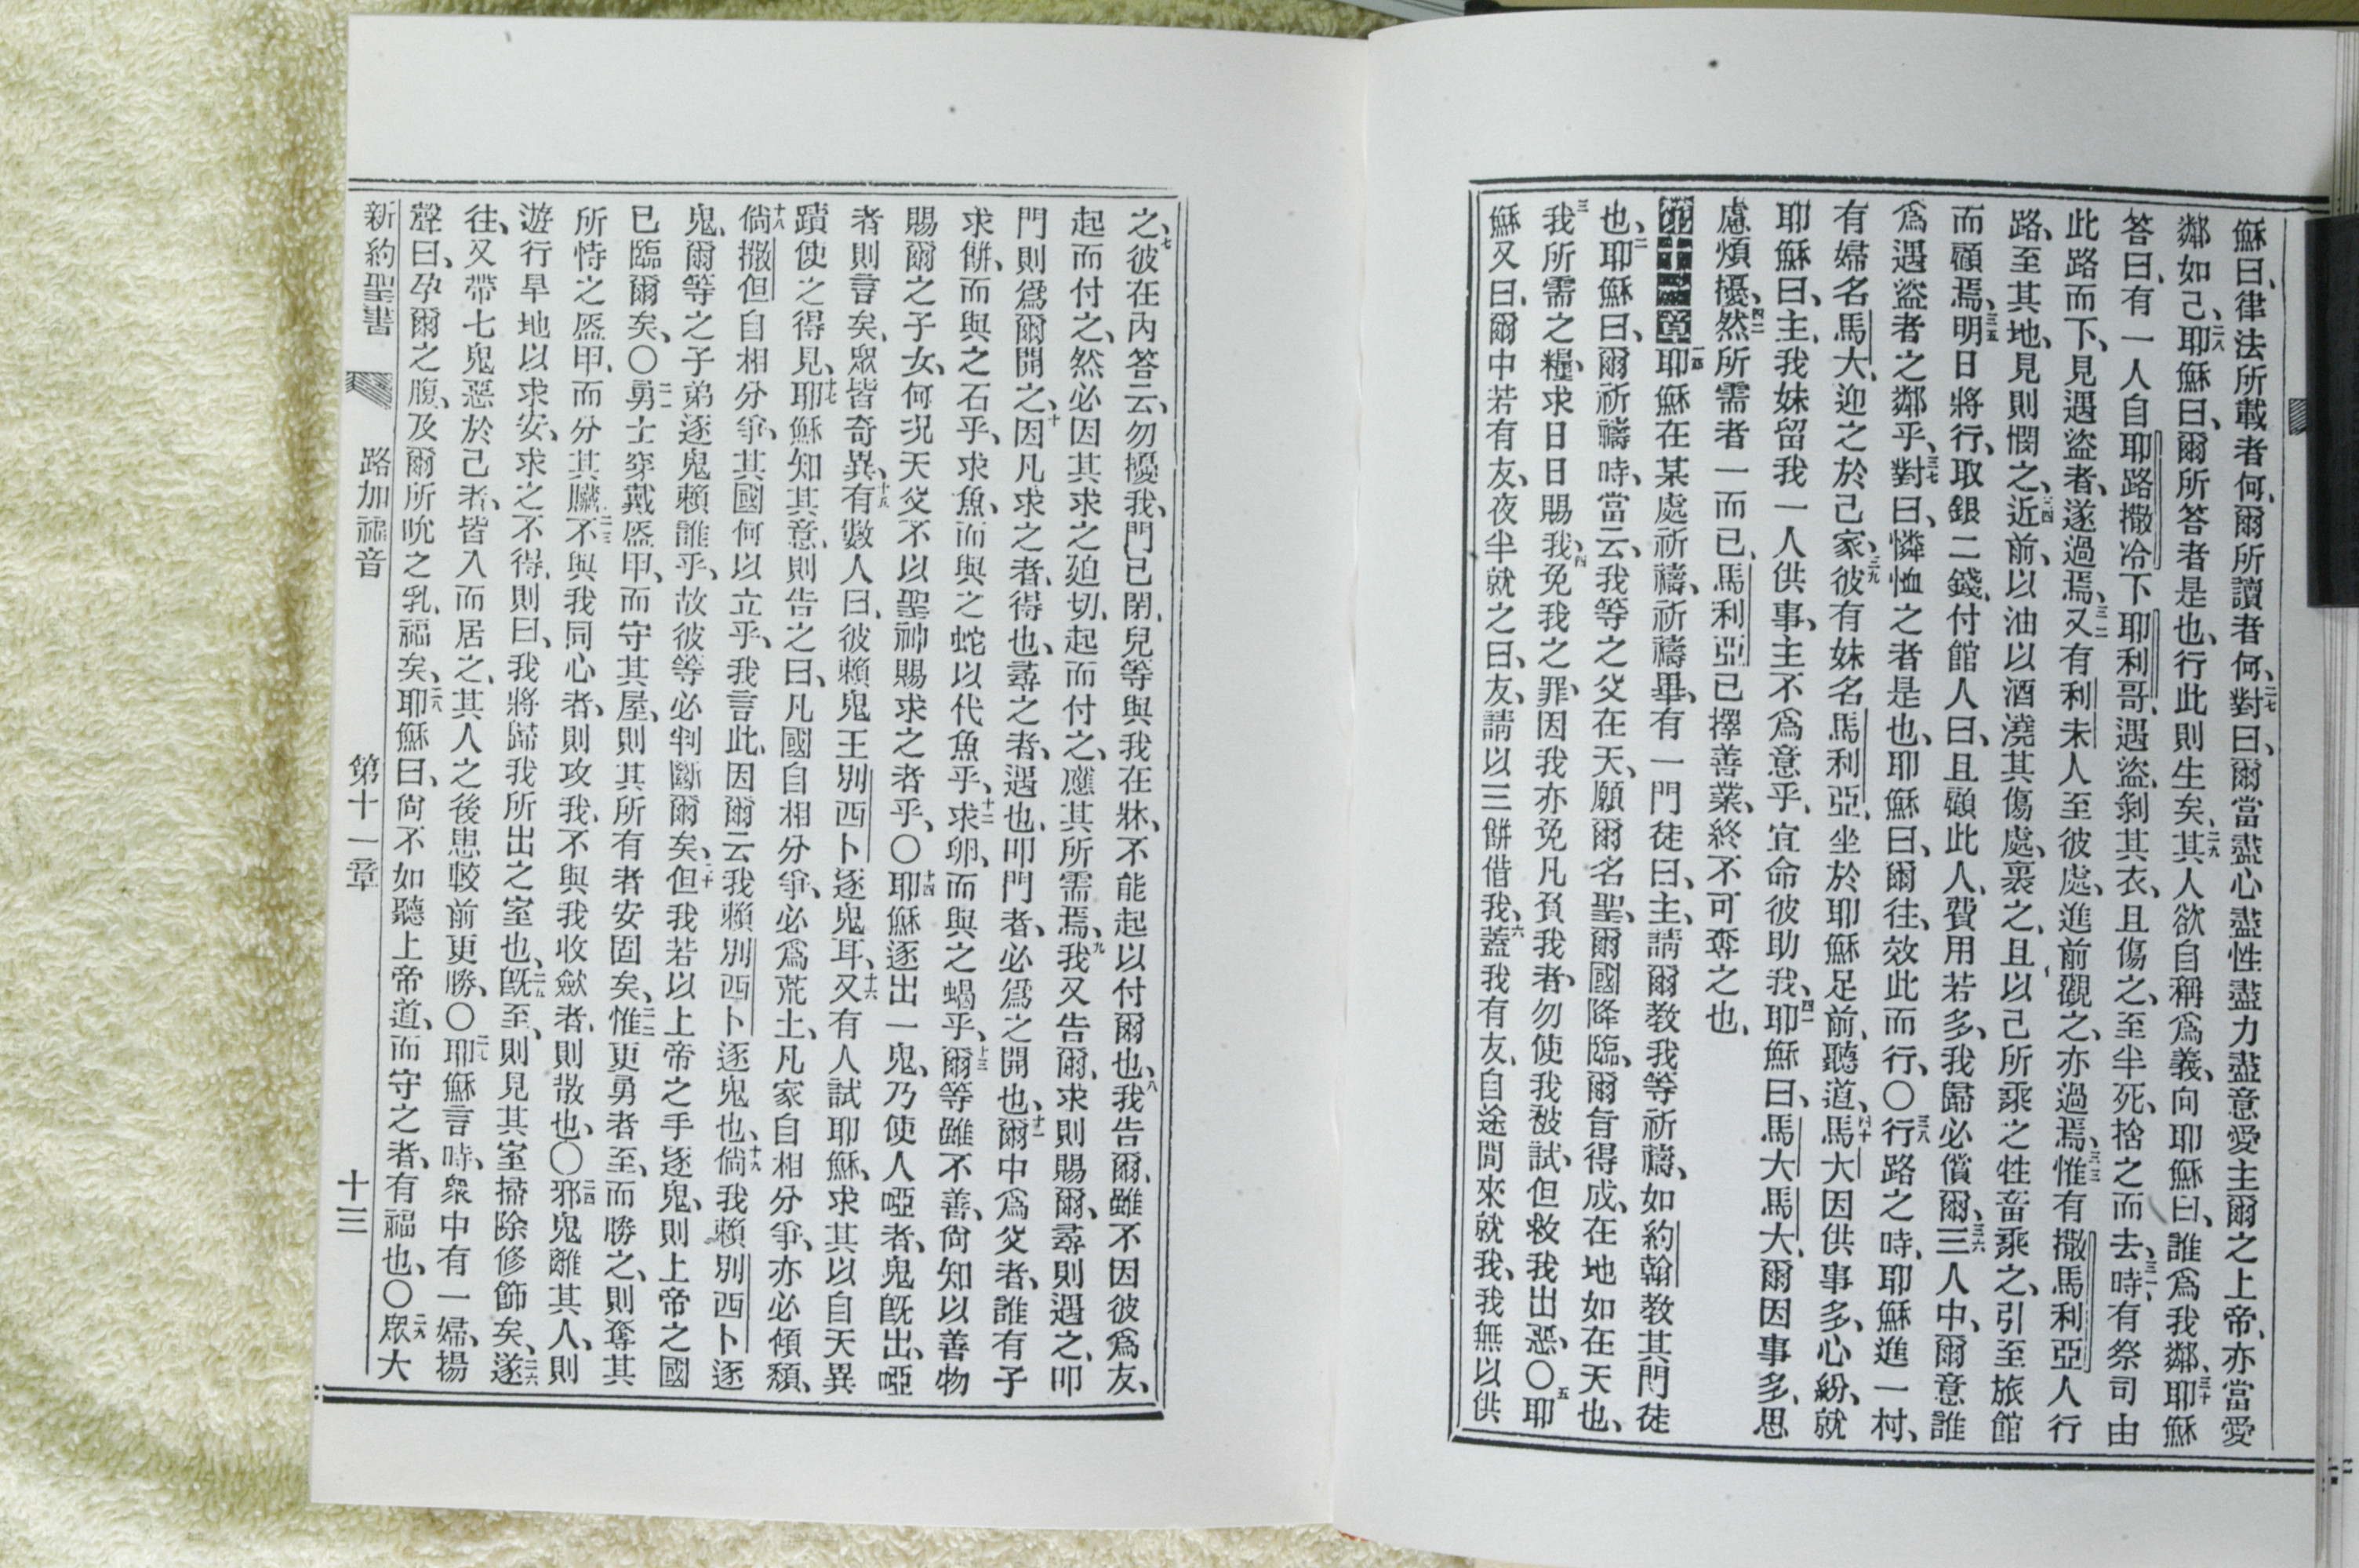 穌曰、律法所載者何、爾所讀者何、二七對曰、爾當盡心盡性盡力盡意愛主爾之上帝、亦當愛
鄰如己、二八耶穌曰、爾所答者是也、行此則生矣、二九其人欲自稱爲義、向耶穌曰、誰爲我鄰、三十耶穌
答曰、有一人自耶路撒冷下耶利哥、遇盜、剝其衣、且傷之、至半死、捨之而去、三一時有祭司由
此路而下、見遇盜者、遂過焉、三二又有利未人至彼處、進前觀之、亦過焉、三三惟有撒馬利亞人行
路、至其地、見則憫之、三四近前、以油以酒澆其傷處、裹之、且以己所乘之牲畜乘之、引至旅館
而顧焉、三五明日將行、取銀二錢、付館人曰、且顧此人、費用若多、我歸必償爾、三六三人中、爾意誰
爲遇盜者之鄰乎、三七對曰、憐恤之者是也、耶穌曰、爾往、效此而行、〇三八行路之時、耶穌進一村、
有婦名馬大、迎之於己家、三九彼有妹名馬利亞、坐於耶穌足前、聽道、四十馬大因供事多、心紛、就
耶穌曰、主、我妹留我一人供事、主不爲意乎、宜命彼助我、四一耶穌曰、馬大馬大、爾因事多、思
慮煩擾、四二然所需者一而已、馬利亞已擇善業、終不可奪之也、
第十一章一耶穌在某處祈禱、祈禱畢、有一門徒曰、主、請爾教我等祈禱、如約翰教其門徒
也、二耶穌曰、爾祈禱時、當云、我等之父在天、願爾名聖、爾國降臨、爾旨得成、在地如在天也、
三我所需之糧、求日日賜我、四免我之罪、因我亦免凡負我者、勿使我被試、但救我出惡、〇五耶
穌又曰、爾中若有友、夜半就之曰、友、請以三餅借我、六蓋我有友、自途間來就我、我無以供
之、七彼在內答云、勿擾我、門已閉、兒等與我在牀、不能起以付爾也、八我告爾、雖不因彼爲友、
起而付之、然必因其求之廹切、起而付之、應其所需焉、九我又告爾、求則賜爾、尋則遇之、叩
門則爲爾開之、十因凡求之者、得也、尋之者、遇也、叩門者、必爲之開也、十一爾中爲父者、誰有子
求餅、而與之石乎、求魚、而與之蛇以代魚乎、十二求卵、而與之蝎乎、十三爾等雖不善、尙知以善物
賜爾之子女、何況天父不以聖神賜求之者乎、〇十四耶穌逐出一鬼、乃使人啞者、鬼旣出、啞
者則言矣、眾皆奇異、十五有數人曰、彼賴鬼王別西卜逐鬼耳、十六又有人試耶穌、求其以自天異
蹟使之得見、十七耶穌知其意、則告之曰、凡國自相分爭、必爲荒土、凡家自相分爭、亦必傾頽、
十八倘撒但自相分爭、其國何以立乎、我言此、因爾云我賴別西卜逐鬼也、十九倘我賴別西卜逐
鬼、爾等之子弟逐鬼賴誰乎、故彼等必判斷爾矣、二十但我若以上帝之手逐鬼、則上帝之國
已臨爾矣、〇二一勇士穿戴盔甲、而守其屋、則其所有者安固矣、二二惟更勇者至、而勝之、則奪其
所恃之盔甲、而分其贜、二三不與我同心者、則攻我、不與我收斂者、則散也、〇二四邪鬼離其人、則
遊行旱地以求安、求之不得、則曰、我將歸我所出之室也、二五旣至、則見其室掃除修飾矣、二六遂
往、又帶七鬼惡於己者、皆入而居之、其人之後患較前更勝、〇二七耶穌言時、眾中有一婦、揚
聲曰、孕爾之腹、及爾所吮之乳、福矣、二八耶穌曰、尙不如聽上帝道、而守之者、有福也、〇二九眾大
新約聖書 路加福音 第十一章 十三